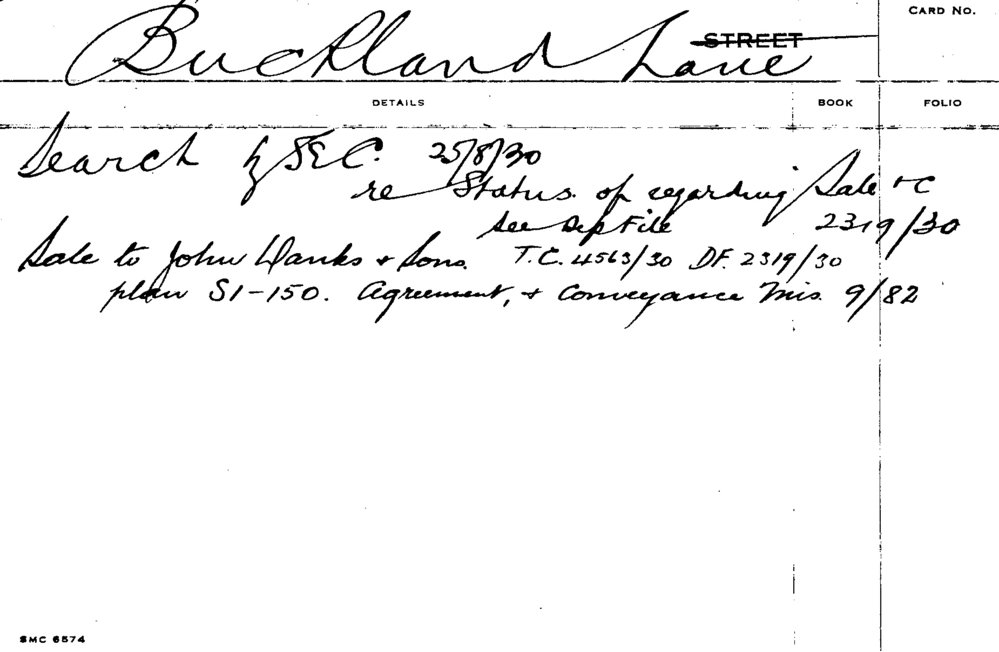 CARD No.
Buckland Lane STREET
DETAILS BOOK FOLIO
Search by 25/8/30
re Status of regarding Sale &c
See Dep File 2319/30
Sale to John Danks & Sons. T.C. 4563/30 DF. 2319/30
plan S1-150. Agreement, & Conveyance Mis. 9/82
SMC 6574